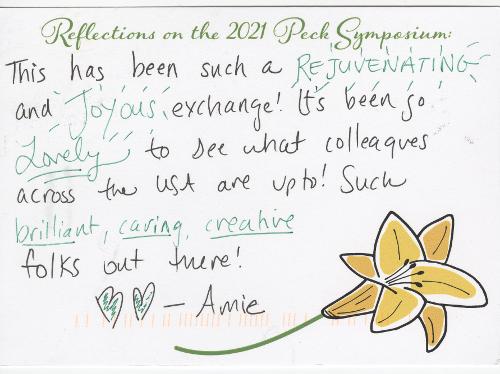 Reflections on the 2021 Peck Symposium:
This has been such a REJUVENATING
and Joyous exchange! It's been so
Lovely to see what colleagues
across the USA are upto! Such
brilliant, caring, creative
folks out there!
– Amie